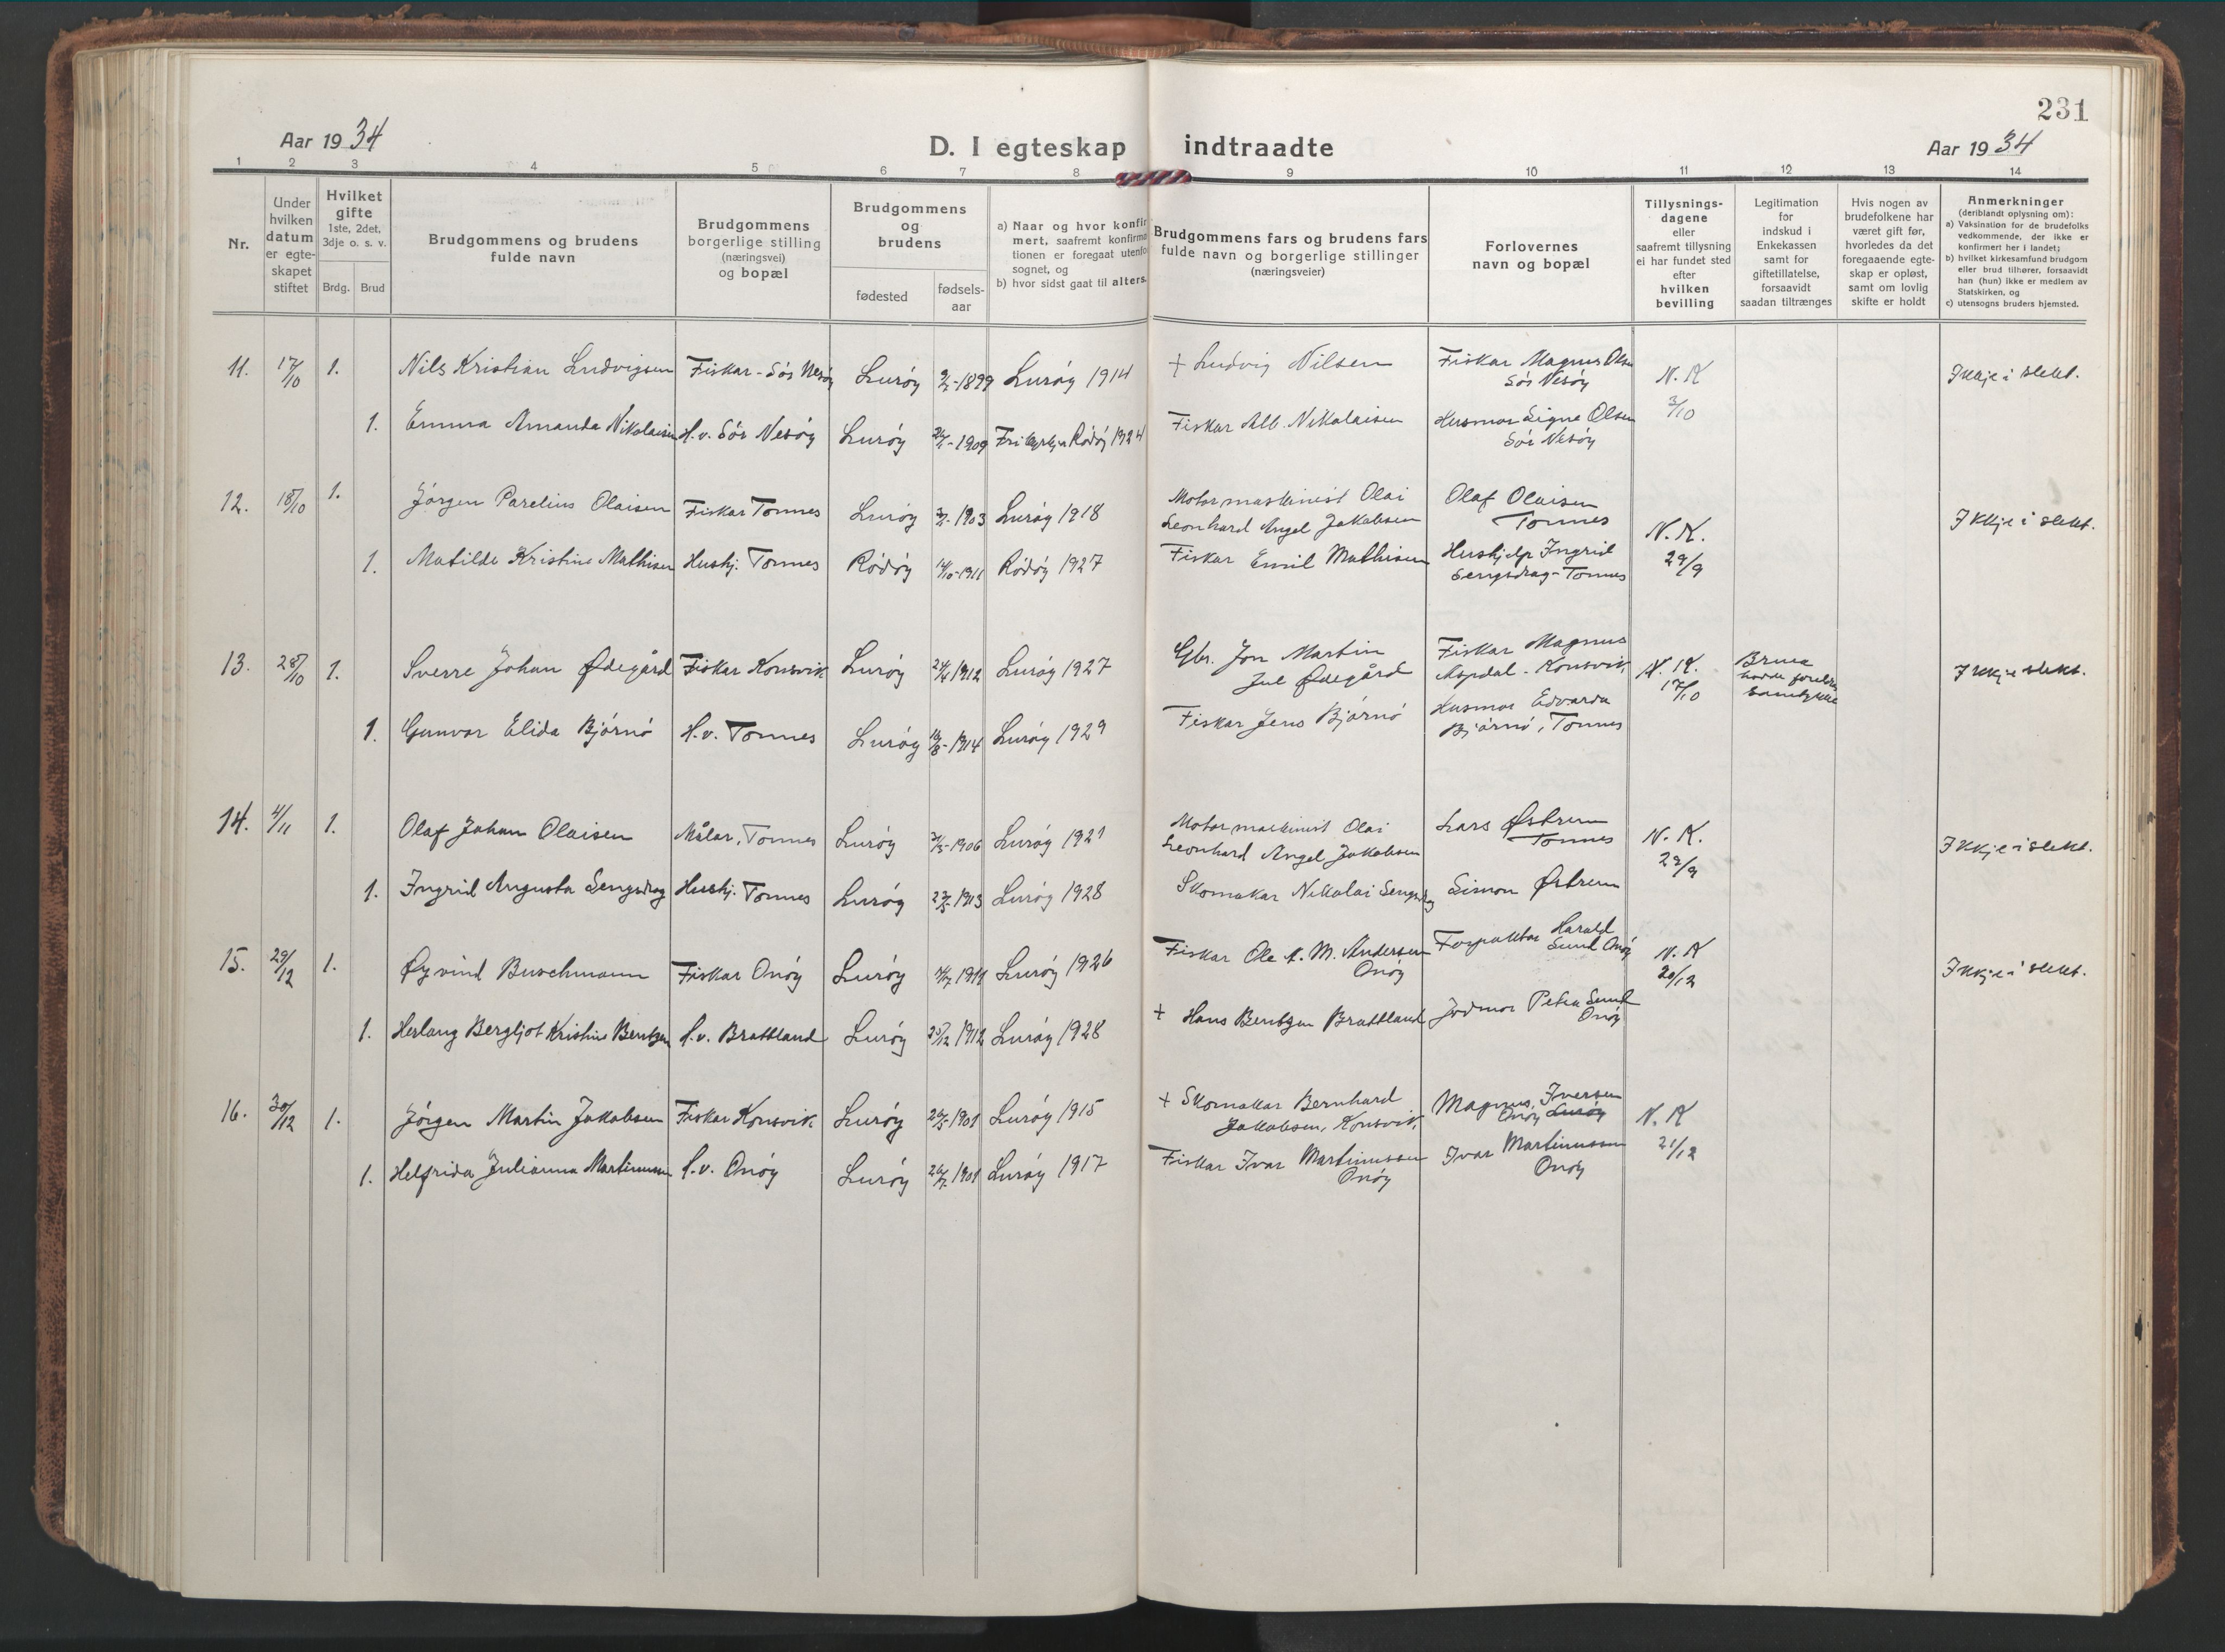 231
Aar 1934
D. I egteskap indtraadte
Aar 1934
1 2 3 4 5 6 7 8 9 10 11 12 13 14
Nr.
Under
hvilken
datum
er egte-
skapet
stiftet
Hvilket
gifte
1ste, 2det,
3dje o. s. v.
Brdg.
Brud
Brudgommens og brudens
fulde navn
Brudgommens
borgerlige stilling
(næringsvei)
og bopæl
Brudgommens
og
brudens
fødested
fødsels-
aar
a) Naar og hvor konfir
mert, saafremt konfirma
tionen er foregaat utenfo
sognet, og
b) hvor sidst gaat til alters.
Brudgommens fars og brudens fars
fulde navn og borgerlige stillinger
(næringsveier)
Forlovernes
navn og bopæl
Tillysnings-
dagene
eller
saafremt tillysning
ei har fundet sted
efter
hvilken
bevilling
Legitimation
for
indskud i
Enkekassen
samt for
giftetillatelse,
forsaavidt
saadan tiltrænges
Hvis nogen av
brudefolkene har
været gift før,
hvorledes da det
foregaaende egte-
skap er opløst,
samt om lovlig
skifte er holdt
Anmerkninger
(deriblandt oplysning om):
a) Vaksination for de brudefolks
vedkommende, der ikke er
konfirmert her i landet;
b) hvilket kirkesamfund brudgom
eller brud tilhører, forsaavidt
han (hun) ikke er medlem av
Statskirken, og
c) utensogns bruders hjemsted.
11. 17/10 1. Nils Kristian Ludvigsen Fiskar - Sør Nesøy Lurøy 1899 Lurøy 1914 + Ludvig Nilsen Fiskar Magnus Olsen
Sør Nesøy
N. K
3/10
Ikkje i slekt.
1. Emma Amanda Nikolaisen H.v. Sør Nesøy Lurøy 1909 Frikyrkja Rødøy 1924 Fiskar Alb. Nikolaisen Husmor Signe Olsen
Sør Nesøy
12. 18/10 1. Jørgen Parelius Olaisen Fiskar Tonnes Lurøy 1903 Lurøy 1918 Motormaskinist Olai
Leonhard Angel Jakobsen
Olaf Olaisen
Tonnes
N. K.
29/9
Ikkje i slekt.
1. Matilde Kristine Mathisen Hushj. Tonnes Rødøy 14/10-1911 Rødøy 1927 Fiskar Emil Mathisen Hushjelp Ingrid
Sengsdrag - Tonnes
13. 28/10 1. Sverre Johan Ødegård Fiskar Konsvik Lurøy 24/4 1912 Lurøy 1927 Gbr. Jon Martin
Jul Ødegård
Fiskar Magnus
Aspdal - Konsvik
N. K.
17/10
Brura
hadde foreldre
samtykke
Ikkje slekt.
1. Gunvor Elida Bjørnø H.v. Tonnes Lurøy 1914 Lurøy 1929 Fiskar Jens Bjørnø Husmor Edvarda
Bjørnø, Tonnes
14. 4/11 1. Olaf Johan Olaisen Målar, Tonnes Lurøy 1906 Lurøy 1921 Motormaskinist Olai
Leonhard Angel Jakobsen
Lars Østrem
Tonnes
N. K.
29/9
Ikkje i slekt.
1. Ingrid Augusta Sengsdrag Hushj. Tonnes Lurøy 1913 Lurøy 1928 Skomakar Nikolai Sengsdrag Simon Østrem
15. 29/12 1. Øyvind Buschmann Fiskar Onøy Lurøy 1911 Lurøy 1926 Fiskar Ole A. M. Andersen
Onøy
Forpaktar Harald
Sund Onøy
N. K
20/12
Ikkje i slekt.
1. Herlaug Bergljot Kristine Bentzen H.v. Brattland Lurøy 1912 Lurøy 1928 + Hans Bentzen Brattland Jordmor Petra Sund
Onøy
16. 30/12 1. Jørgen Martin Jakobsen Fiskar Konsvik Lurøy 1901 Lurøy 1915 + Skomakar Bernhard
Jakobsen, Konsvik
Magnus Iversen
Onøy Lurøy
N. K
21/12
1. Helfrida Julianna Martinussen H.v. Onøy Lurøy 1901 Lurøy 1917 Fiskar Ivar Martinussen
Onøy
Ivar Martinussen
Onøy